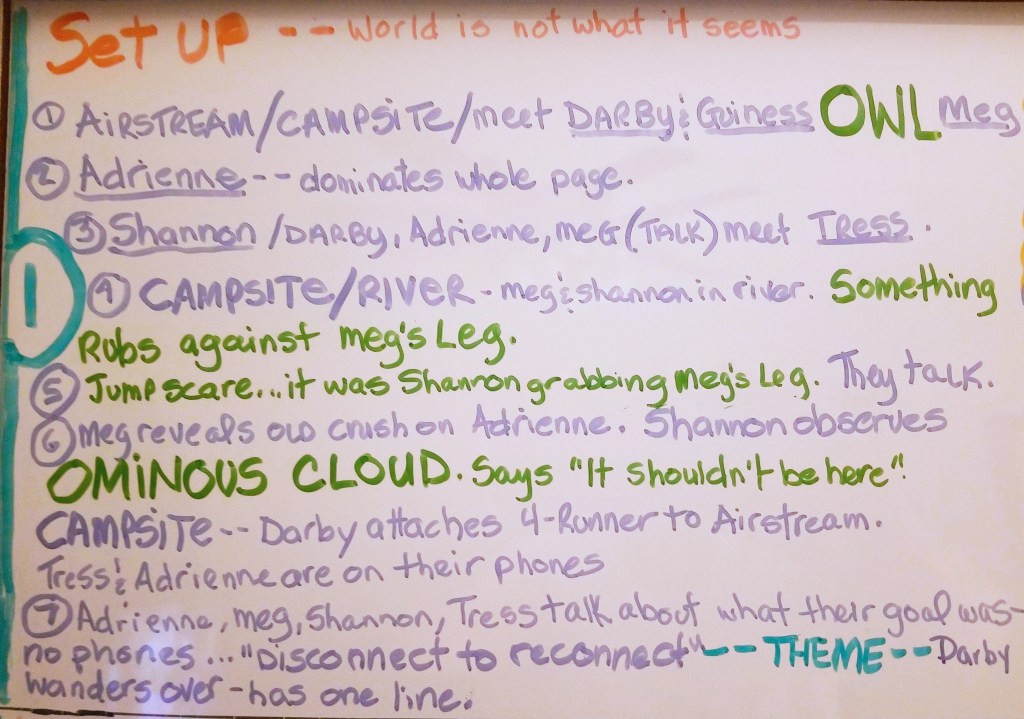 Set UP -- World is not what it seems
① AIRSTREAM/CAMPSITE/meet DARBY & Guiness OWL Meg
② Adrienne -- dominates whole page.
③ Shannon /DARBY, Adrienne, meg (TALK) meet Tress.
1
④ CAMPSITE/RIVER - meg & shannon in river. Something
Rubs against meg's Leg.
⑤ Jump scare...it was Shannon grabbing meg's Leg. They talk.
⑥ meg reveals old crush on Adrienne. Shannon observes
OMINOUS CLOUD. Says "It shouldn't be here".
CAMPSITE -- Darby attaches 4-Runner to Airstream.
Tress & Adrienne are on their phones
⑦ Adrienne, meg, Shannon, Tress talk about what their goal was-
no phones ... "Disconnect to reconnect" -- THEME -- Darby
wanders over - has one line.